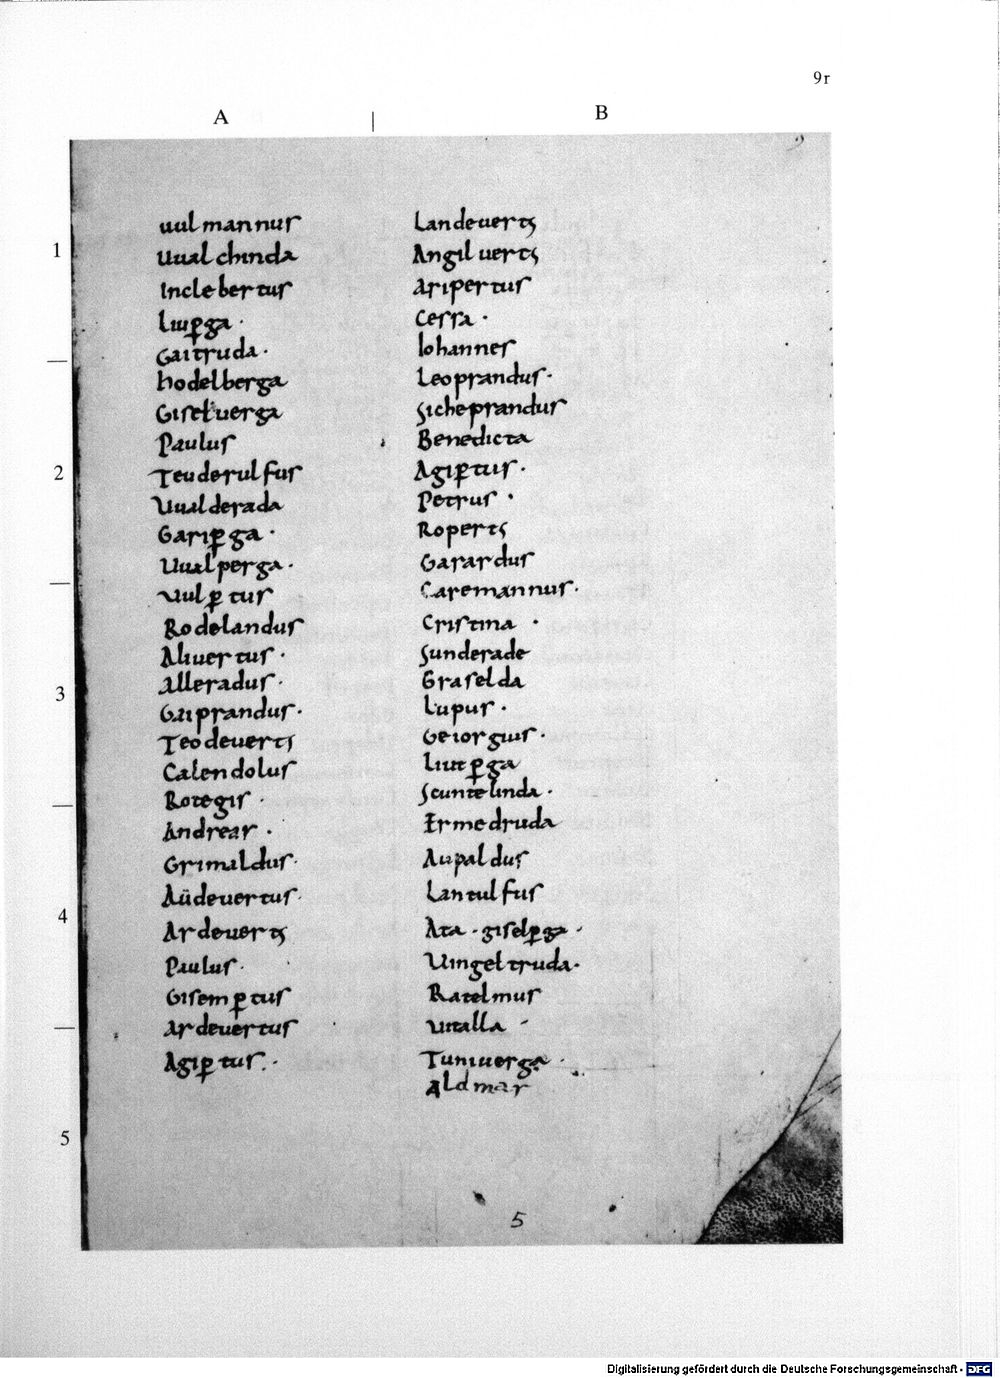 9r
A
B
9
1
2
3
4
5
uulmannus
Uualchinda
Inclebertus
Liuꝑga ·
Gaitruda ·
hodelberga
Giseluerga
Paulus
Teuderulfus
Uualderada
Gariꝑga ·
Uualperga ·
Uulꝑtus
Rodelandus
Aliuertus ·
Alleradus ·
Gaiprandus ·
Teodeuerts
Calendolus
Rotegis ·
Andreas ·
Grimaldus ·
Audeuertus ·
Ardeuerts
Paulus ·
Gisemꝑtus
Ardeuertus
Agiꝑtus ·
Landeuerts
Angiluerts
Aripertus
Cessa ·
Iohannes
Leoprandus ·
Sicheprandus
Benedicta
Agiꝑtus ·
Petrus ·
Roperts
Garardus
Caremannus ·
Cristina ·
Sunderade
Graselda
Lupus ·
Geiorgius ·
Liutꝑga
Scuntelinda ·
Ermedruda
Aupaldus
Lantulfus
Ata · giselꝑga ·
Uingeltruda ·
Ratelmus
Uitalla
Tuniuerga ·
Aldmar
5
Digitalisierung gefördert durch die Deutsche Forschungsgemeinschaft - DFG